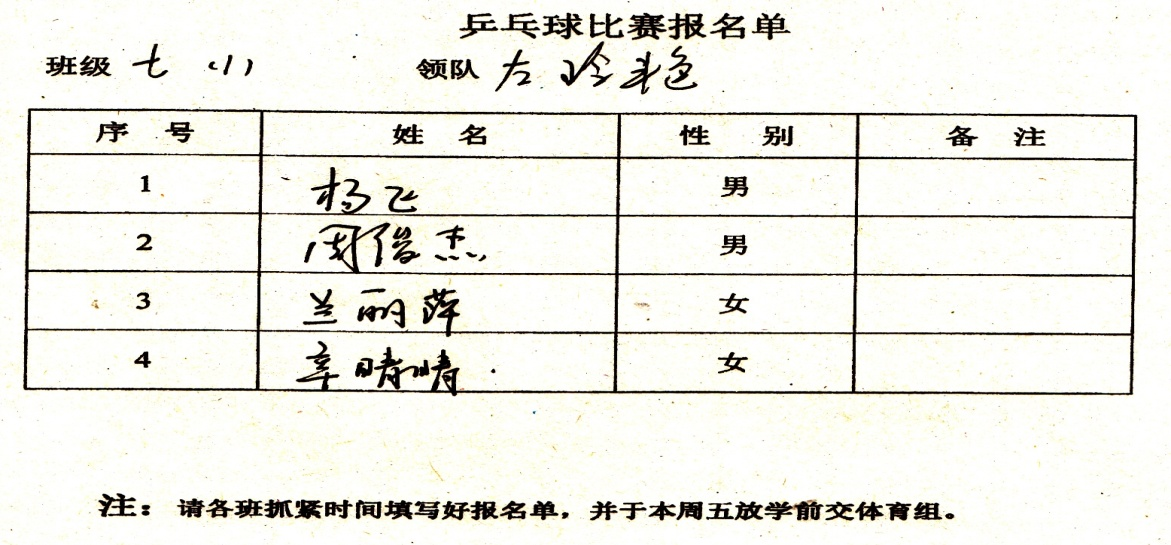 乒乓球比赛报名单
班级 七(1) 领队 左玲艳
序号 姓名 性别 备注
1 杨飞 男
2 周俊杰 男
3 兰丽萍 女
4 辛晴晴 女
注：请各班抓紧时间填写好报名单，并于本周五放学前交体育组。